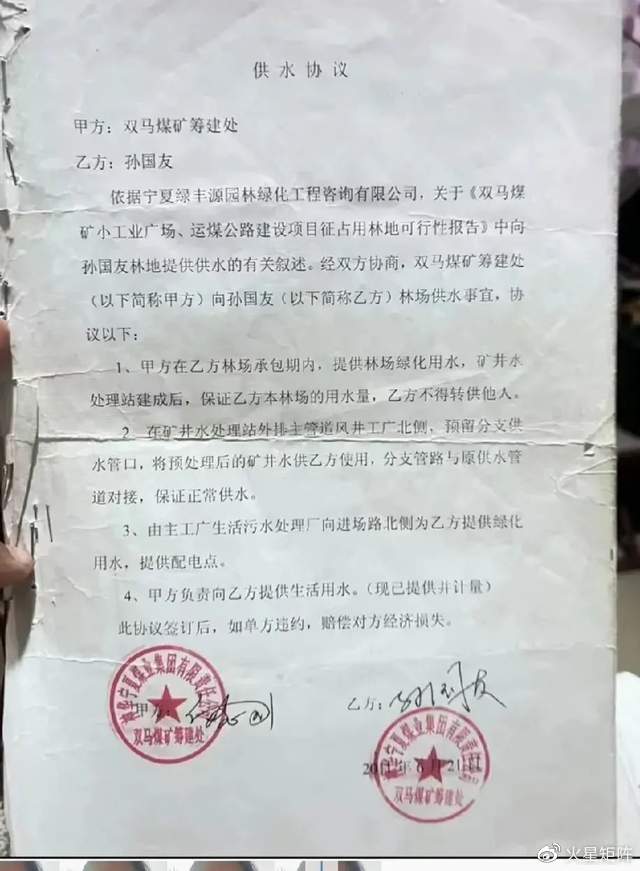 供水协议
甲方：双马煤矿筹建处
乙方：孙国友
依据宁夏绿丰源园林绿化工程咨询有限公司，关于《双马煤
矿小工业广场、运煤公路建设项目征占用林地可行性报告》中向
孙国友林地提供供水的有关叙述。经双方协商，双马煤矿筹建处
（以下简称甲方）向孙国友（以下简称乙方）林场供水事宜，协
议以下：
1、甲方在乙方林场承包期内，提供林场绿化用水，矿井水
处理站建成后，保证乙方本林场的用水量，乙方不得转供他人。
2、在矿井水处理站外排主管道风井工广北侧，预留分支供
水管口，将预处理后的矿井水供乙方使用，分支管路与原供水管
道对接，保证正常供水。
3、由主工广生活污水处理厂向进场路北侧为乙方提供绿化
用水，提供配电点。
4、甲方负责向乙方提供生活用水。（现已提供并计量）
此协议签订后，如单方违约，赔偿对方经济损失。
神华宁夏煤业集团有限责任公司
甲方：
双马煤矿筹建处
乙方：孙国友
神华宁夏煤业集团有限责任公司
2011年6月21日
双马煤矿筹建处
火星矩阵